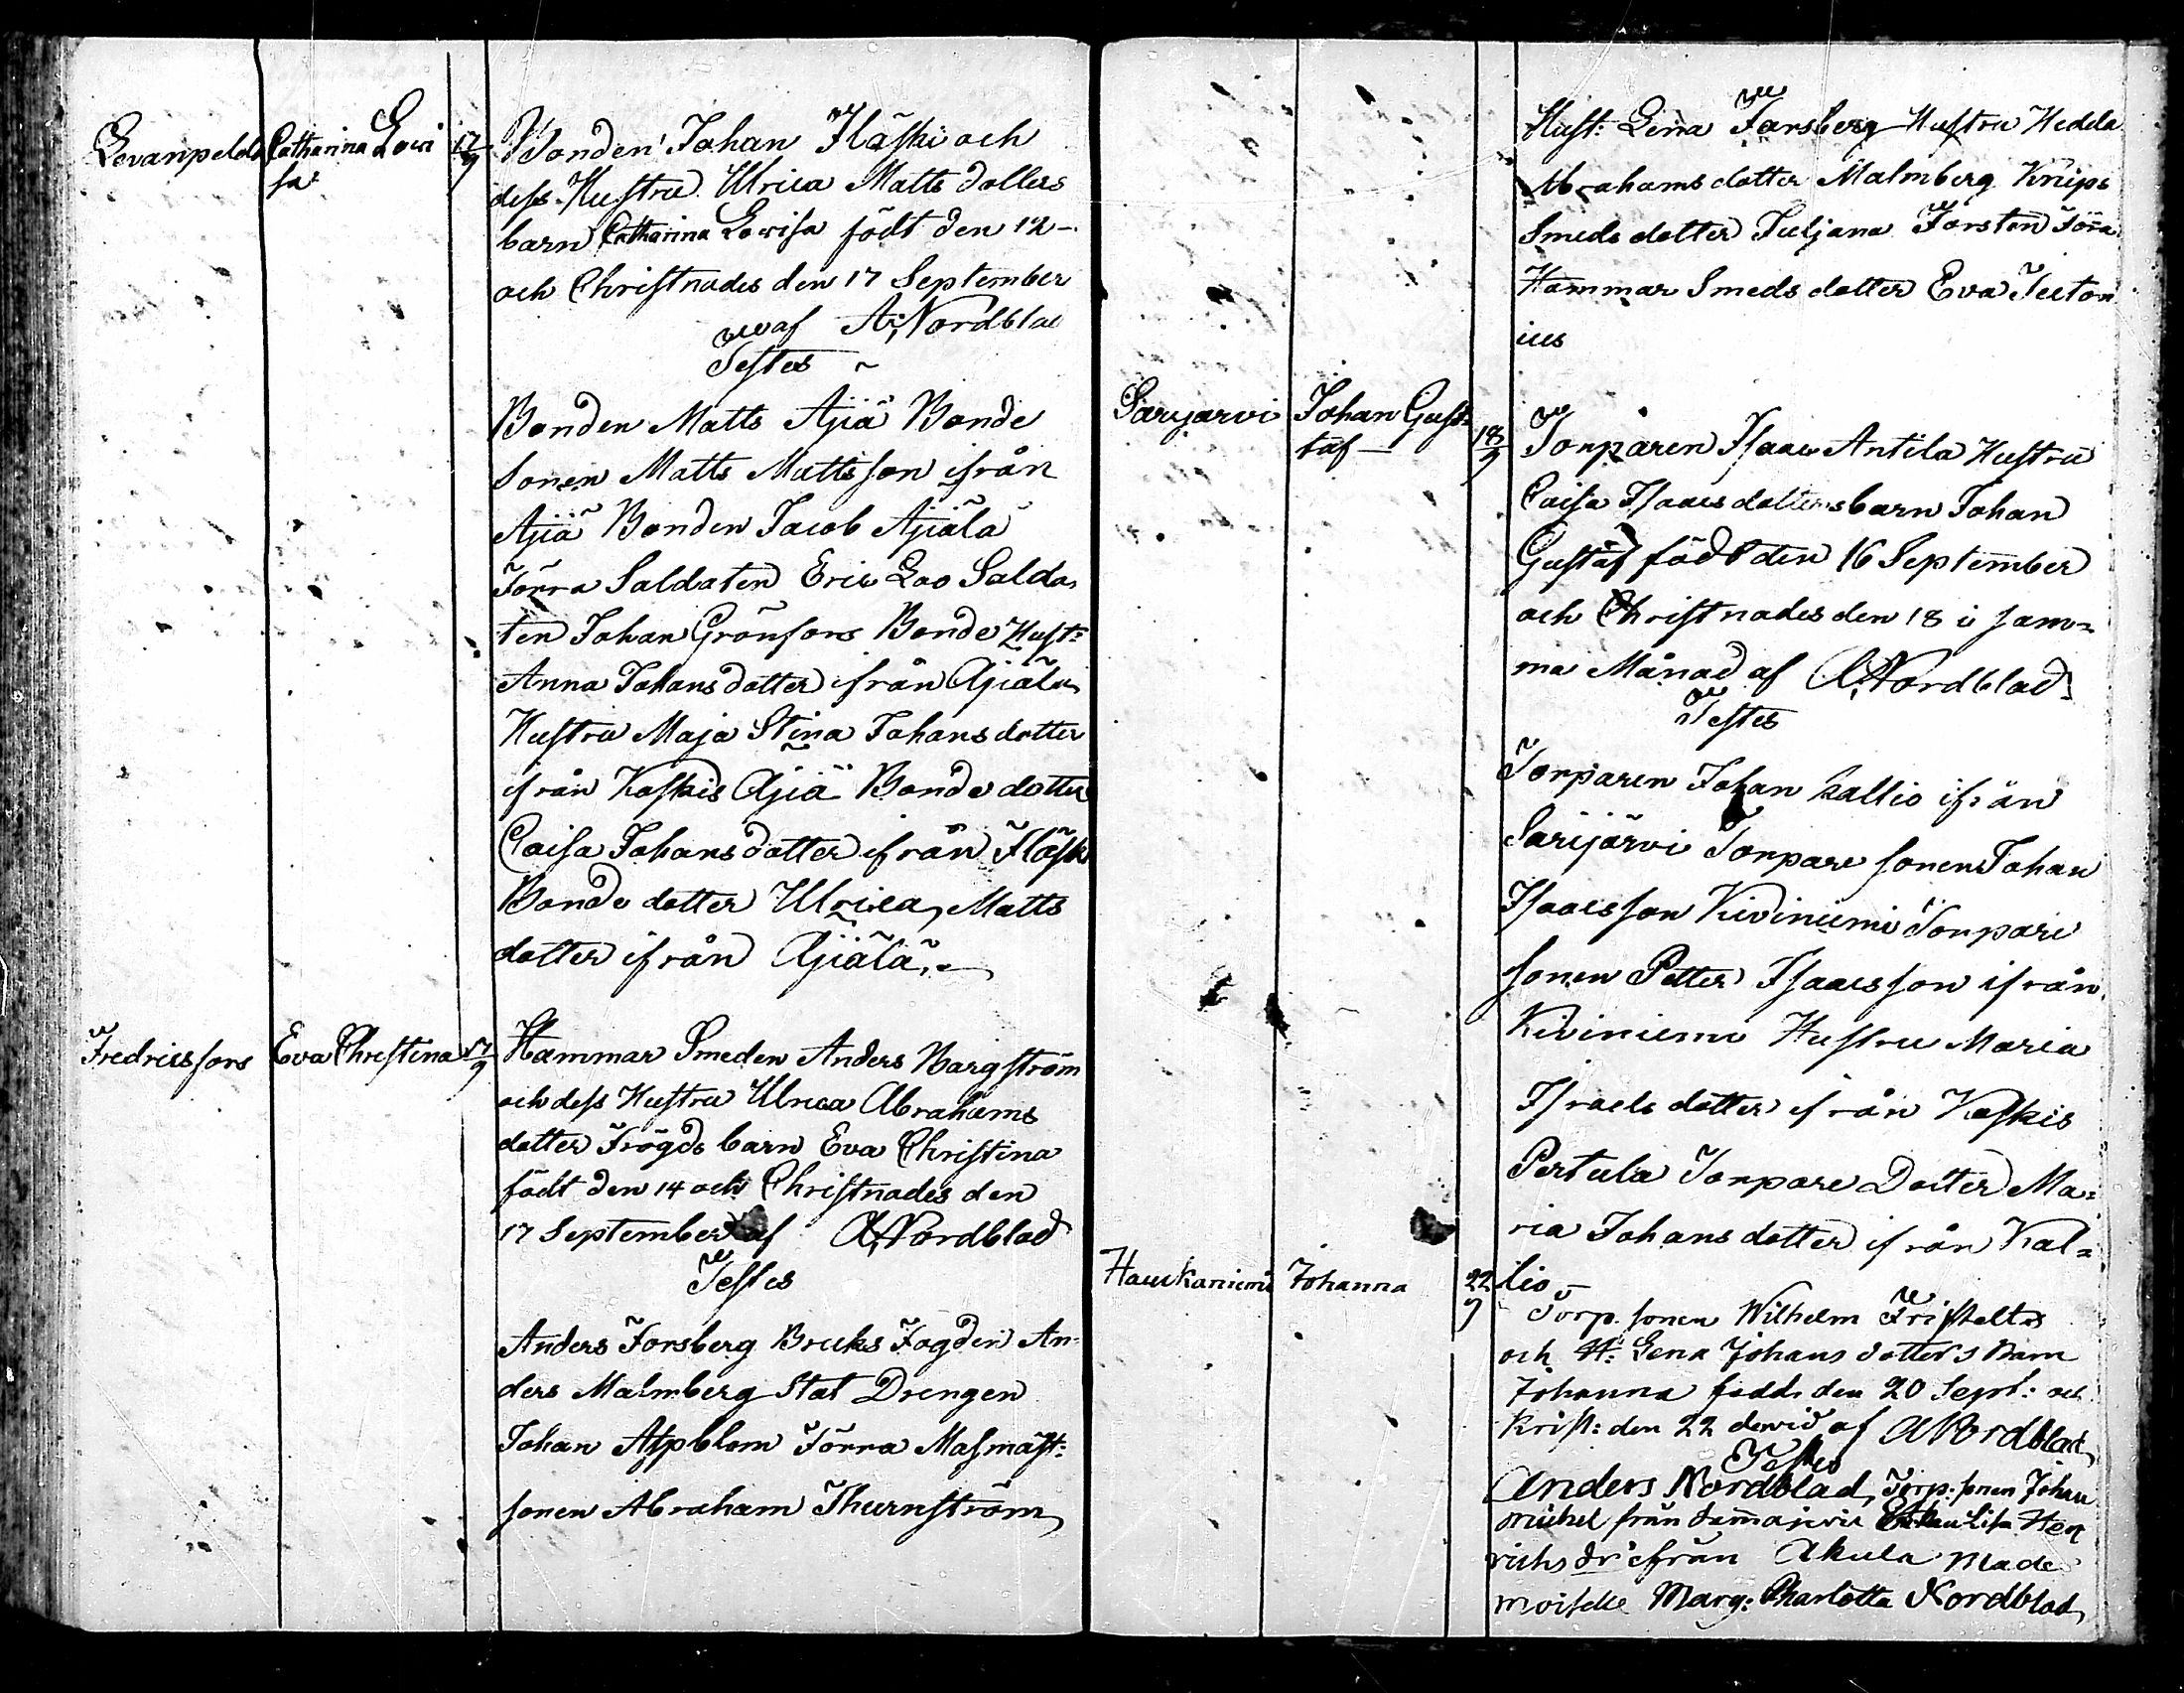 Levanpeldo Catharina Lowi 17/9 Bonden Johan Fläski och
sa. dess Hustru Ulrica Matts dotters
barn Catharina Lowisa födt den 12 –
och Christnades den 17 September
af A: Nordblad
Testes ~
Bonden Matts Ajiä Bonde
Sonen Matts Mattsson ifrån
Ajiä Bonden Jacob Ajiälä
Förra Soldaten Eric Loo Solda
ten Johan Grönfors Bonde Hust:
Anna Johans dotter ifrån Ajiälä
Hustru Maja Stina Johans dotter
ifrån Koskis Ajiä Bonde dotter
Caisa Johans dotter ifrån Fläski
Bonde dotter Ulrica Matts
dotter ifrån Ajiälä.
Fredricsfors Eva Christina 17/9 Hammar Smeden Anders Bargström
och dess Hustru Ulrica Abrahams
dotter Frögds barn Eva Christina
födt den 14 och Christnades den
17 September af A: Nordblad
Testes
Anders Forsberg Bruks Fogden An-
ders Malmberg Stat Drengen
Johan Aspblom Förra Masmäst:
sonen Abraham Thurnström
Hust: Lena Farsberg Hustru Hedda
Abrahams dotter Malmberg Knips
Smeds dotter Juljana Forsten Förra
Hammar Smeds dotter Eva Teeton
ius
Sarijarvi Johan Gust= 18/9 Torparen Isaac Antila Hustru
taf – Caisa Isaacs dotters barn Johan
Gustaf födt den 16 September
och Christnades den 18 i sam=
ma Månad af A: Nordblad.
Testes
Torparen Johan Kallio ifrån
Sarijärvi Torpare sonen Johan
Isaacsson Kiviniemi Torpare
sonen Petter Isaacsson ifrån
Kiviniemi Hustru Maria
Israels dotter ifrån Koskis
Pertula Torpare Dotter Ma=
ria Johans dotter ifrån Kal=
lio –
Haukaniemi Johanna 22/9 Torp. sonen Wilhelm Fristedts
och H: Lena Johans dotters Barn
Johanna födde den 20 Sept: och
Krist: den 22 af A Nordblad
Testes
Anders Nordblad, Torp: sonen Johan
Michel från Lisa Hen
richs dr ifrån Akula Made
moiselle Marg: Charlotta Nordblad